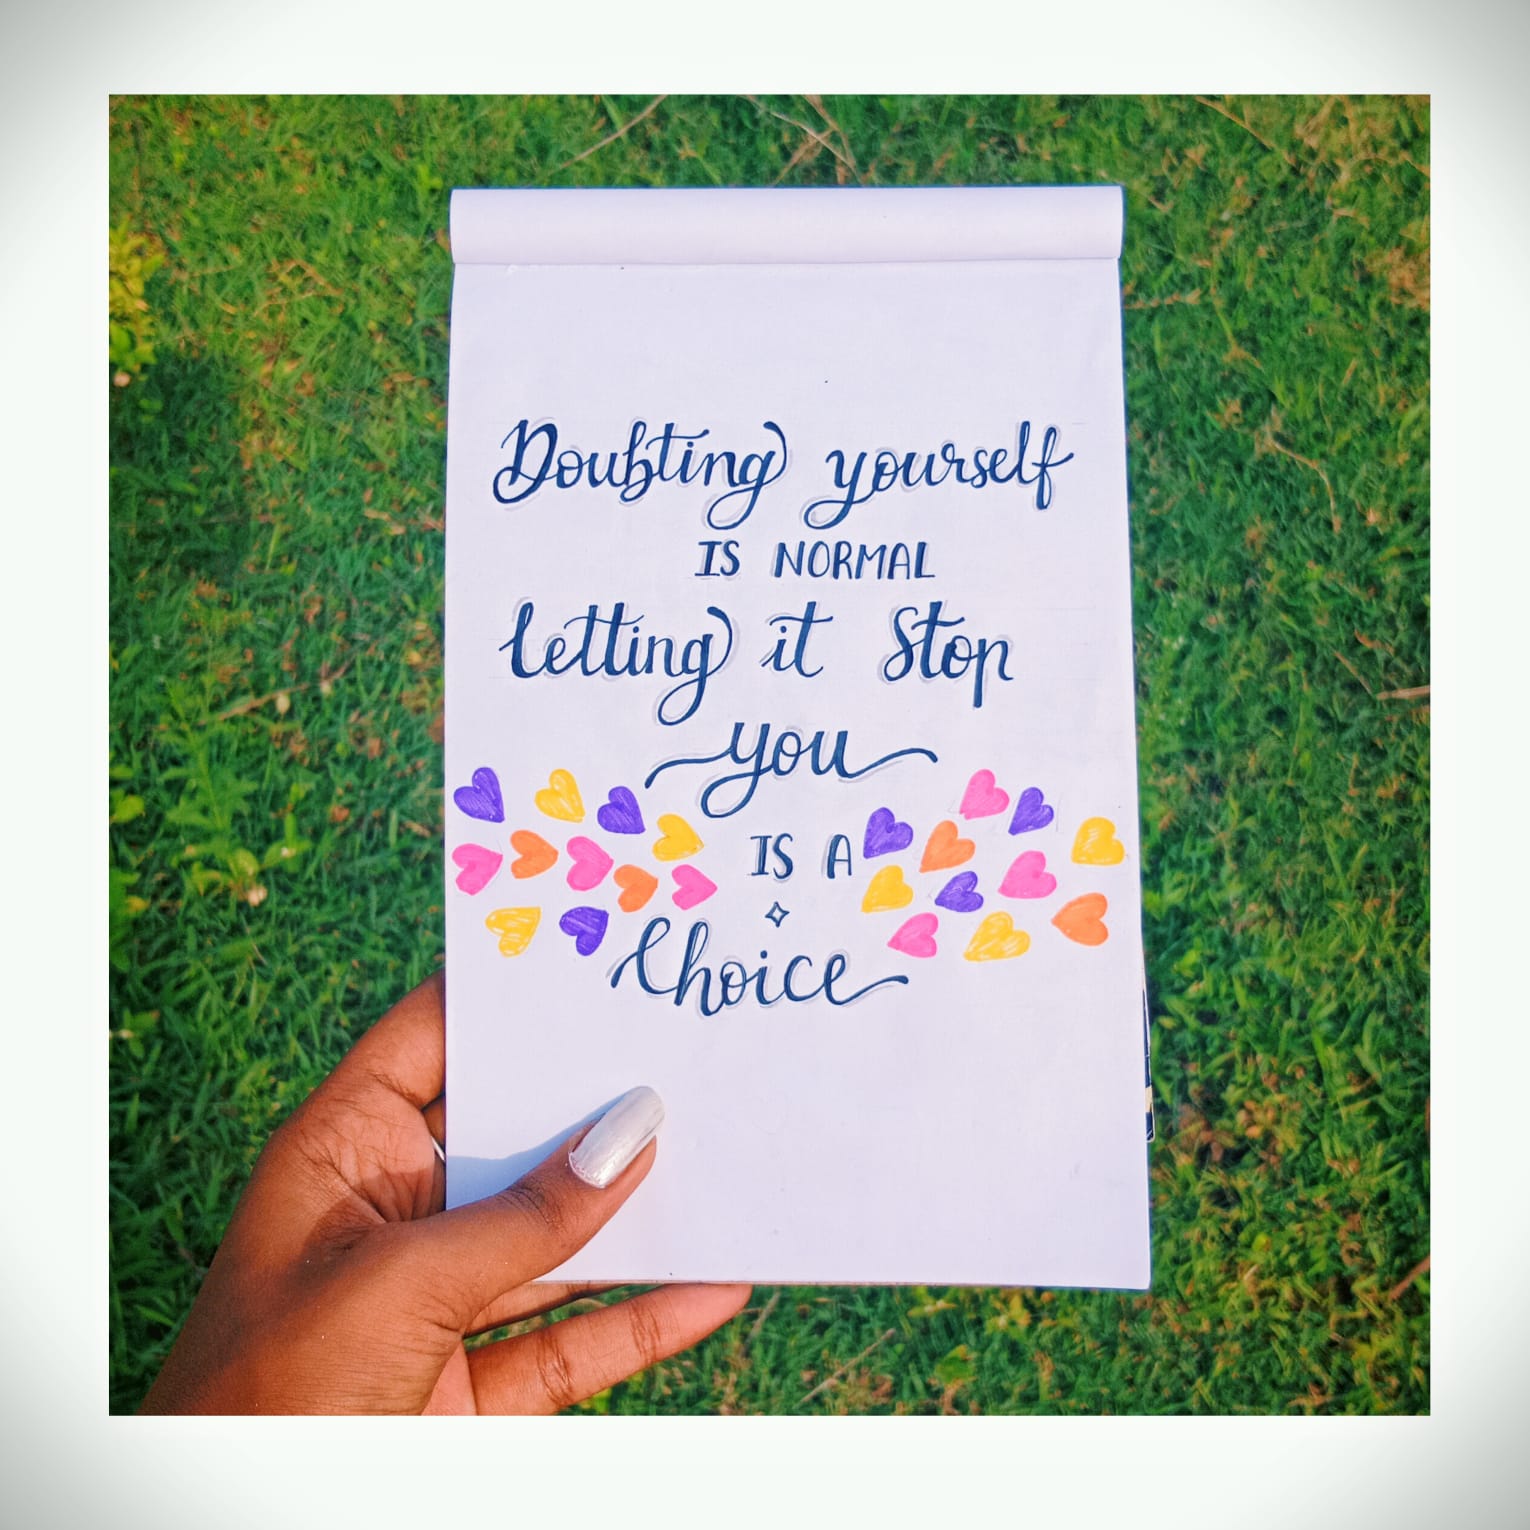 Doubting yourself
IS NORMAL
letting it Stop
you
IS A
Choice